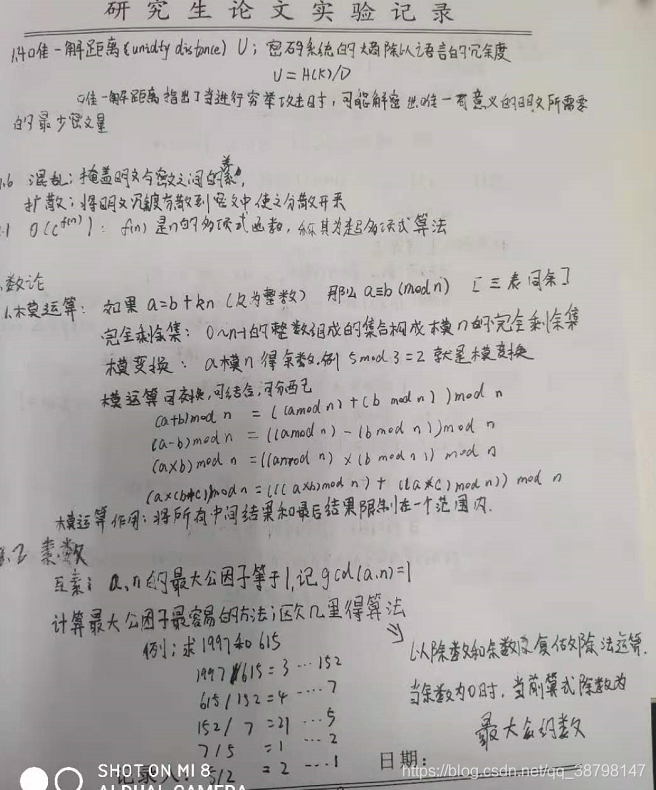 研究生论文实验记录
1.4 唯一解距离 (unicity distance) U；密码系统的熵除以语言的冗余度
U = H(K)/D
唯一解距离指出了当进行穷举攻击时，可能解密出唯一有意义的明文所需要
的最少密文量
.6 混乱：掩盖明文与密文之间的关系,
扩散：将明文冗余度分散到密文中使之分散开来
.1 O(c^f(n))：f(n)是n的多项式函数，称其为超多项式算法
数论
1.模运算：如果 a=b+kn (k为整数) 那么 a≡b(mod n) [三表同余]
完全剩余集：0~n-1的整数组成的集合构成模n的完全剩余集
模变换：a模n得余数.例 5 mod 3 = 2 就是模变换
模运算可交换,可结合,可分配
(a+b)mod n = ((amod n)+(b mod n))mod n
(a-b)mod n = ((amod n) - (b mod n))mod n
(a×b)mod n = ((amod n) × (b mod n)) mod n
(a×(b+c))modn = (((a×b)mod n) + ((a×c) mod n)) mod n
模运算作用：将所有中间结果和最后结果限制在一个范围内.
.2 素数
互素：a,n的最大公因子等于1,记gcd(a,n)=1
计算最大公因子最容易的方法；欧几里得算法
以除数和余数反复做除法运算.
当余数为0时，当前算式除数为
最大公约数
例；求1997和615
1997/615=3 ...152
615/152=4 ....7
152/7=21 ...5
7/5=1 ...2
5/2=2 ....1
记录人：
日期：
SHOT ON MI 8
AI DUAL CAMERA
https://blog.csdn.net/qq_38798147